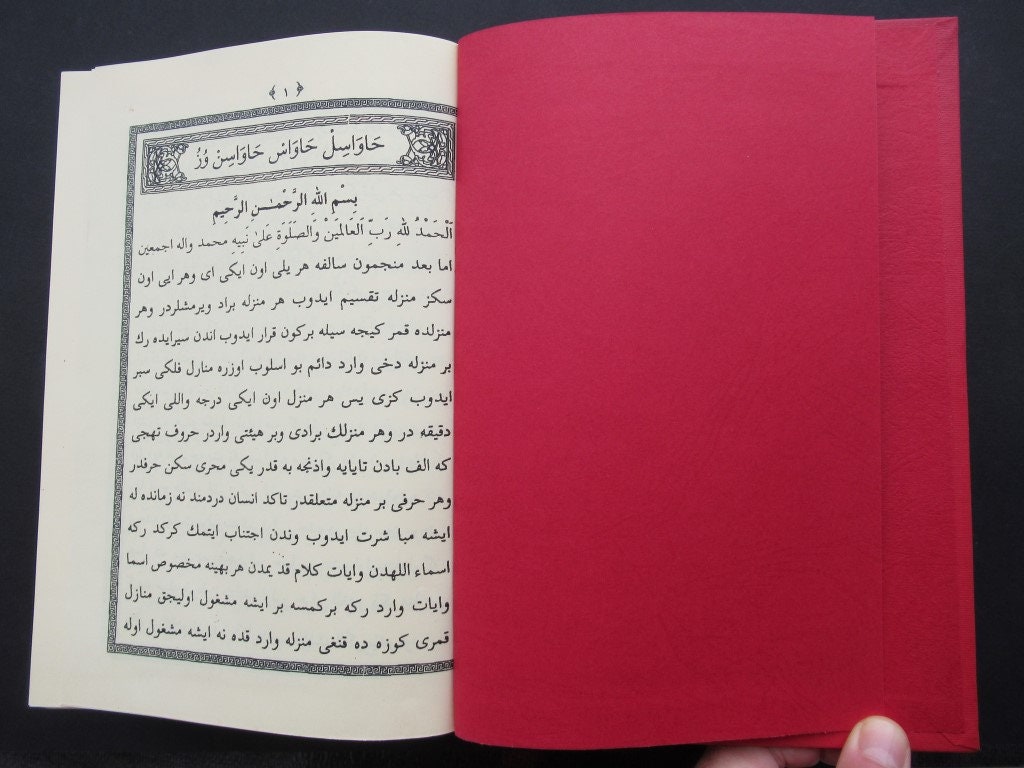 ﴿ ١ ﴾
حَاوَاسِلْ حَاوَاسْ حَاوَاسِنْ وُزُ
بِسْمِ اللهِ الرَّحْمٰنِ الرَّحِيمِ
اَلْحَمْدُ لِلّٰهِ رَبِّ الْعَالَمِيَنْ وَالصَّلَوَةِ عَلىٰ نَبِيهِ محمد واله اجمعين
اما بعد منجمون سالفه هر يلى اون ايكى اى وهر ايى اون
سكز منزله تقسيم ايدوب هر منزله براد ويرمشلردر وهر
منزلده قمر كيجه سيله بركون قرار ايدوب اندن سيرايده رك
بر منزله دخى وارد دائم بو اسلوب اوزره منارل فلكى سبر
ايدوب كزى يس هر منزل اون ايكى درجه واللى ايكى
دقيقه در وهر منزلك برادى وبر هيئتى واردر حروف تهجى
كه الف بادن تايايه واذنجه به قدر يكى محرى سكن حرفدر
وهر حرفى بر منزله متعلقدر تاكد انسان دردمند نه زمانده له
ايشه مبا شرت ايدوب وندن اجتناب ايتمك كركد ركه
اسماء اللهدن وايات كلام قد يمدن هر بهينه مخصوص اسما
وايات وارد ركه بركمسه بر ايشه مشغول اوليجق منازل
قمرى كوزه ده قنغى منزله وارد قده نه ايشه مشغول اوله